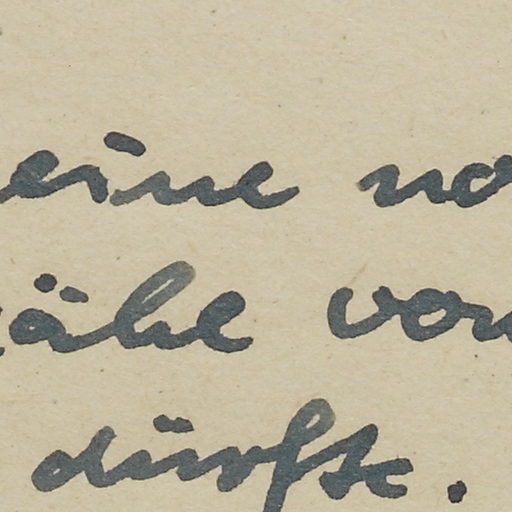 eine no
ähe von
dürfte.